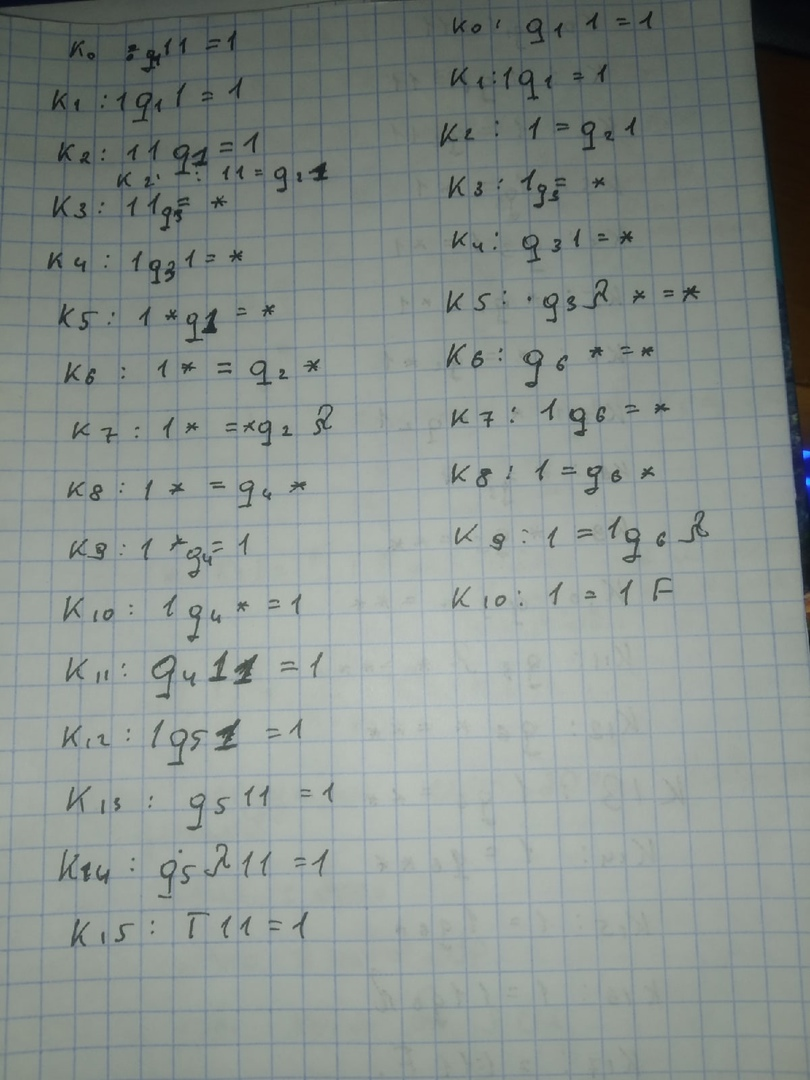 K0 : q1 11 = 1
K1 : 1 q1 1 = 1
K2 : 11 q1 = 1
K2' : 11 = q2 1
K3 : 11 q3 = *
K4 : 1 q3 1 = *
K5 : 1 * q1 = *
K6 : 1 * = q2 *
K7 : 1 * = * q2 λ
K8 : 1 * = q4 *
K9 : 1 * q4 = 1
K10 : 1 q4 * = 1
K11 : q4 11 = 1
K12 : 1 q5 1 = 1
K13 : q5 11 = 1
K14 : q5 λ 11 = 1
K15 : T 11 = 1
K0 : q1 1 = 1
K1 : 1 q1 = 1
K2 : 1 = q2 1
K3 : 1 q3 = *
K4 : q3 1 = *
K5 : q3 λ * = *
K6 : q6 * = *
K7 : 1 q6 = *
K8 : 1 = q6 *
K9 : 1 = 1 q6 λ
K10 : 1 = 1 F